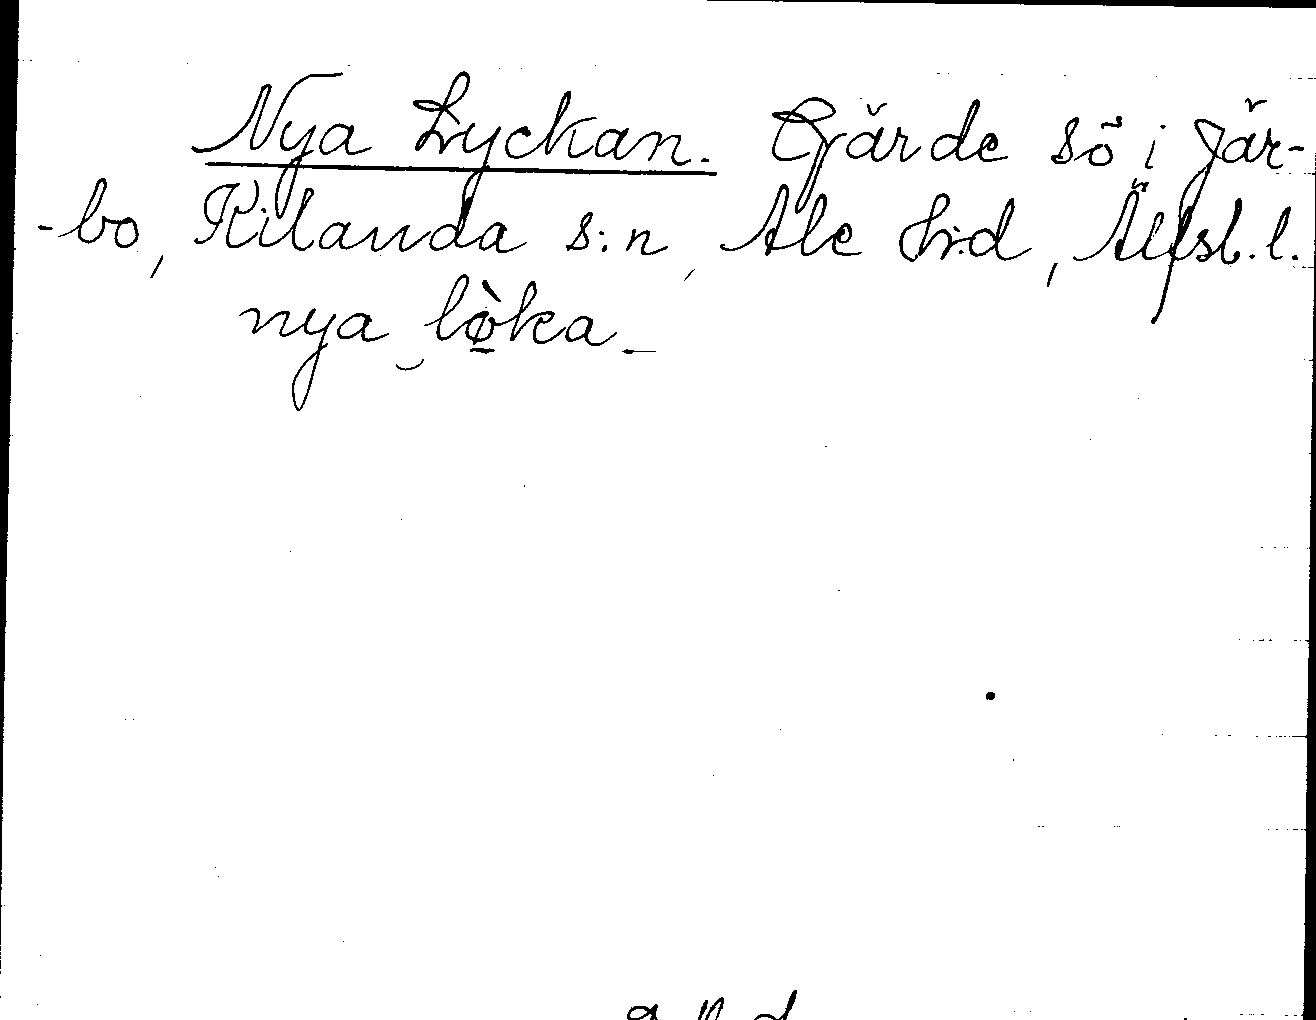 Nya Lyckan. Gärde sö i Jär-
-bo, Kilanda s:n, Ale h:d, Älfsb. l.
nya ‿lø̠̀ka_